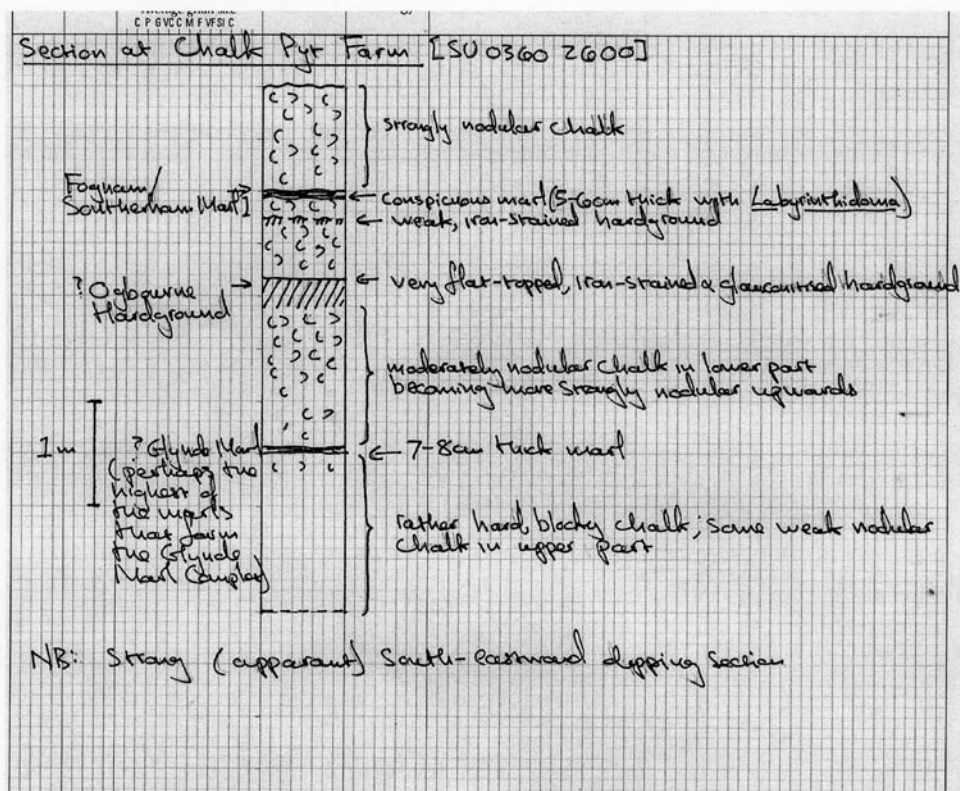 C P GVCC M F VFSI C
Section at Chalk Pyt Farm [SU 0360 2600]
strongly nodular chalk
Fognam/
Southerham Marl]
conspicuous marl (5-6cm thick with Labyrinthidoma)
weak, iron-stained hardground
? Ogbourne
Hardground
very flat-topped, iron-stained & glauconitised hardground
moderately nodular chalk in lower part
becoming more strongly nodular upwards
1m
? Glynde Marl
(perhaps the
highest of
the marls
that form
the Glynde
Marl Complex)
7-8cm thick marl
rather hard, blocky chalk; some weak nodular
chalk in upper part
NB: Strong (apparant) South-eastward dipping Section